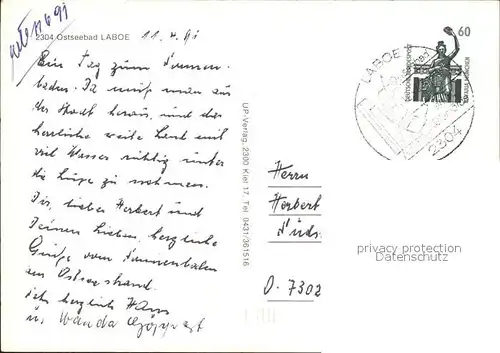 2304 Ostseebad LABOE 11.4.91
Ein Tag zum Sonnen-
baden. Da muß man aus
der Stadt heraus, und das
herrliche weite Land mit
viel Wasser richtig unter
die Lupe zu nehmen.
Dir, lieber Herbert und
Deinen Lieben, herzliche
Grüße vom Sonnenbaden
am Ostseestrand.
Hans
u. Wanda
UP-Verlag, 2300 Kiel 17, Tel. 0431/361516
60
DEUTSCHE BUNDESPOST
BAVARIA MÜNCHEN
LABOE
2304
Herrn
Herbert
O-7302
privacy protection
Datenschutz